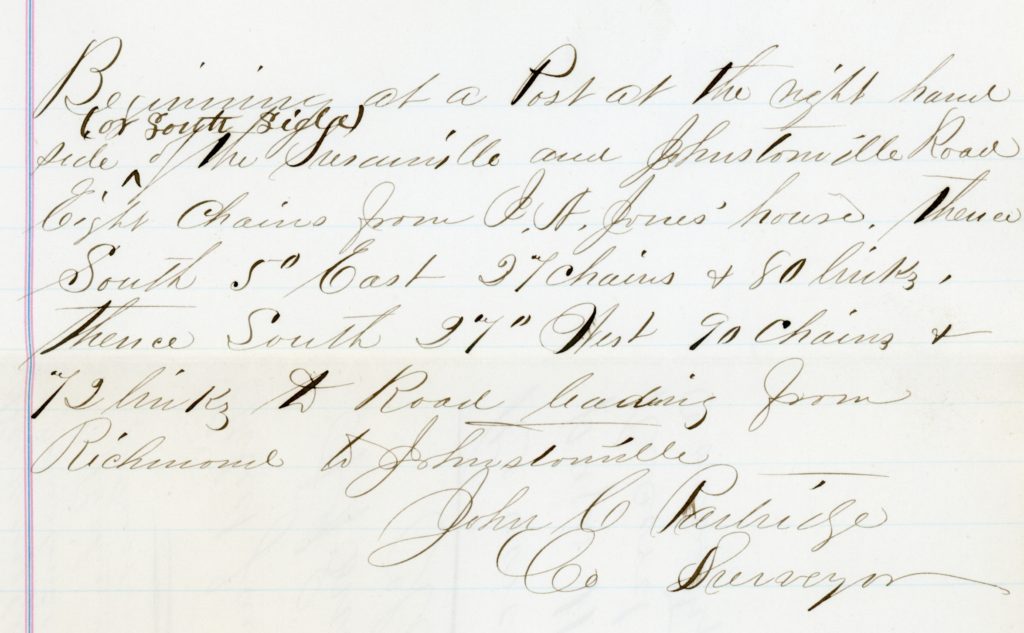 Beginning at a Post at the right hand
(or South Side)
side ^ of the Susanville and Johnstonville Road
Eight Chains from J. A. Jones' house, thence
South 5° East 27 chains & 80 links,
thence South 27° West 90 chains &
72 links to Road leading from
Richmond to Johnstonville
John C Partridge
Co Surveyor